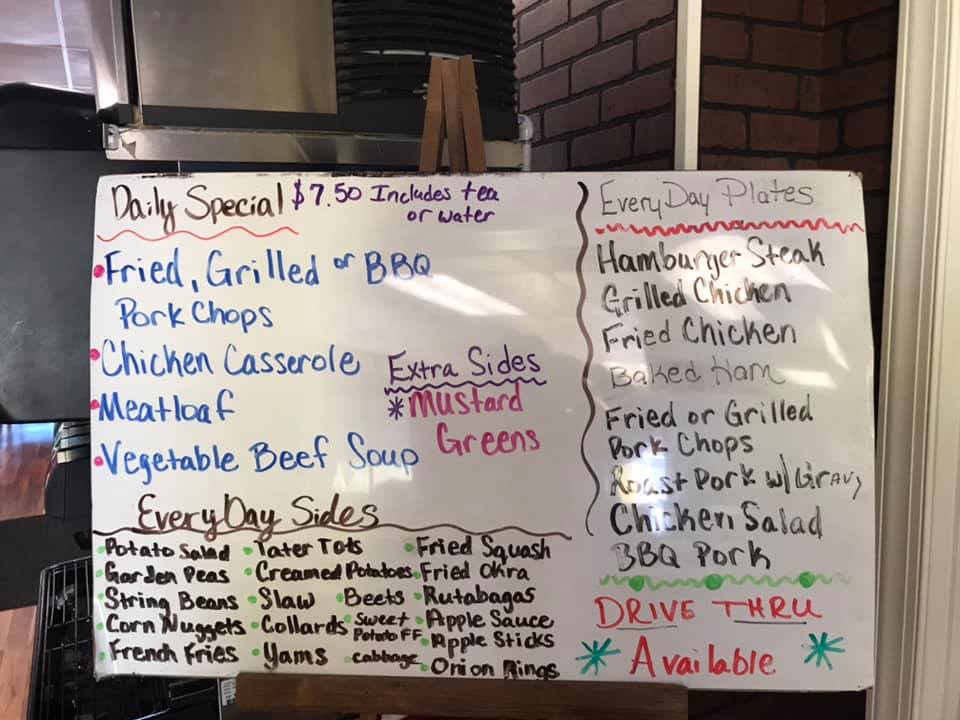 Daily Special $7.50 Includes tea
or water
Fried, Grilled or BBQ
Pork Chops
Chicken Casserole
Meatloaf
Vegetable Beef Soup
Extra Sides
*Mustard
Greens
EveryDay Sides
Potato Salad
Garden Peas
String Beans
Corn Nuggets
French Fries
Tater Tots
Creamed Potatoes
Slaw
Collards
Yams
Beets
Sweet
Potato FF
Cabbage
Fried Squash
Fried Okra
Rutabagas
Apple Sauce
Apple Sticks
Onion Rings
EveryDay Plates
Hamburger Steak
Grilled Chicken
Fried Chicken
Baked Ham
Fried or Grilled
Pork Chops
Roast Pork w/Gravy
Chicken Salad
BBQ Pork
DRIVE THRU
* Available *